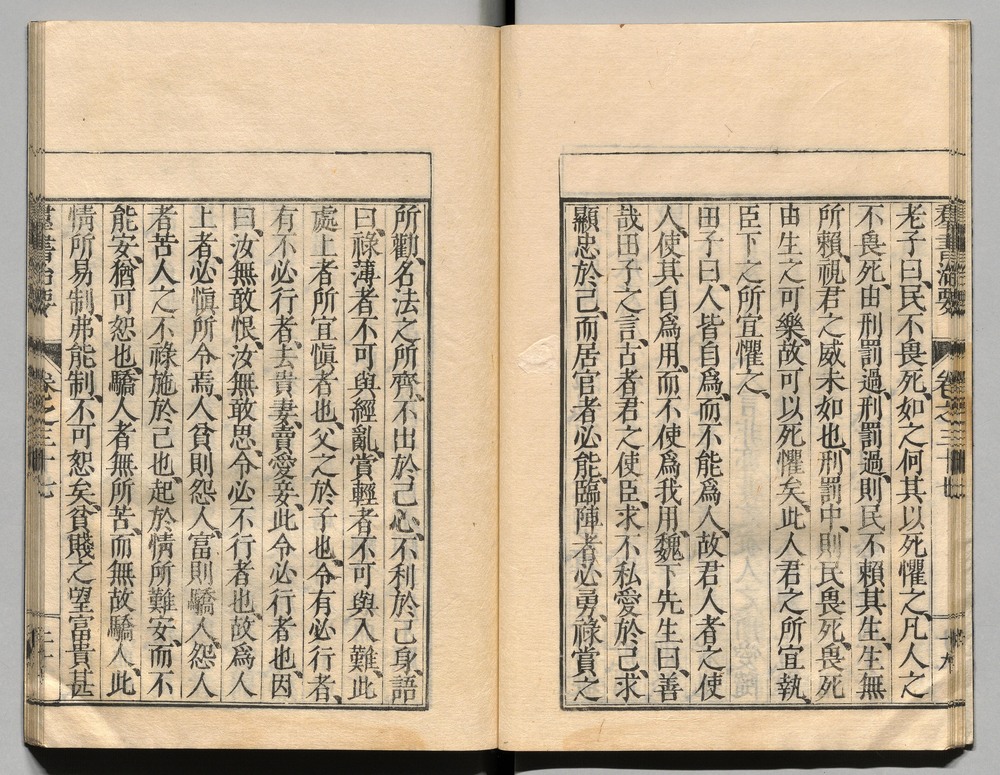 羣書治要 卷之三十七 十九
老子曰、民不畏死、如之何其以死懼之、凡人之
不畏死、由刑罰過、刑罰過、則民不賴其生、生無
所賴、視君之威未如也、刑罰中、則民畏死、畏死
由生之可樂、故可以死懼矣、此人君之所宜執、
臣下之所宜懼之、
田子曰、人皆自爲、而不能爲人、故君人者之使
人、使其自爲用、而不使爲我用、魏下先生曰、善
哉田子之言、古者君之使臣、求不私愛於己、求
顯忠於己、而居官者必能、臨陣者必勇、祿賞之
所勸、名法之所齊、不出於己心、不利於己身、語
曰、祿薄者不可與經亂、賞輕者不可與入難、此
處上者所宜愼者也、父之於子也、令有必行者、
有不必行者、去貴妻、賣愛妾、此令必行者也、因
曰、汝無敢恨、汝無敢思、令必不行者也、故爲人
上者、必愼所令焉、人貧則怨人、富則驕人、怨人
者苦人之不祿施於己也、起於情所難安、而不
能安、猶可恕也、驕人者無所苦、而無故驕人、此
情所易制、弗能制、不可恕矣、貧賤之望富貴甚
羣書治要 卷之三十七